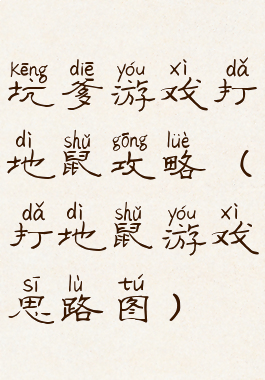 kēng diē yóu xì dǎ
坑爹游戏打
dì shǔ gōng lüè
地鼠攻略（
dǎ dì shǔ yóu xì
打地鼠游戏
sī lù tú
思路图）